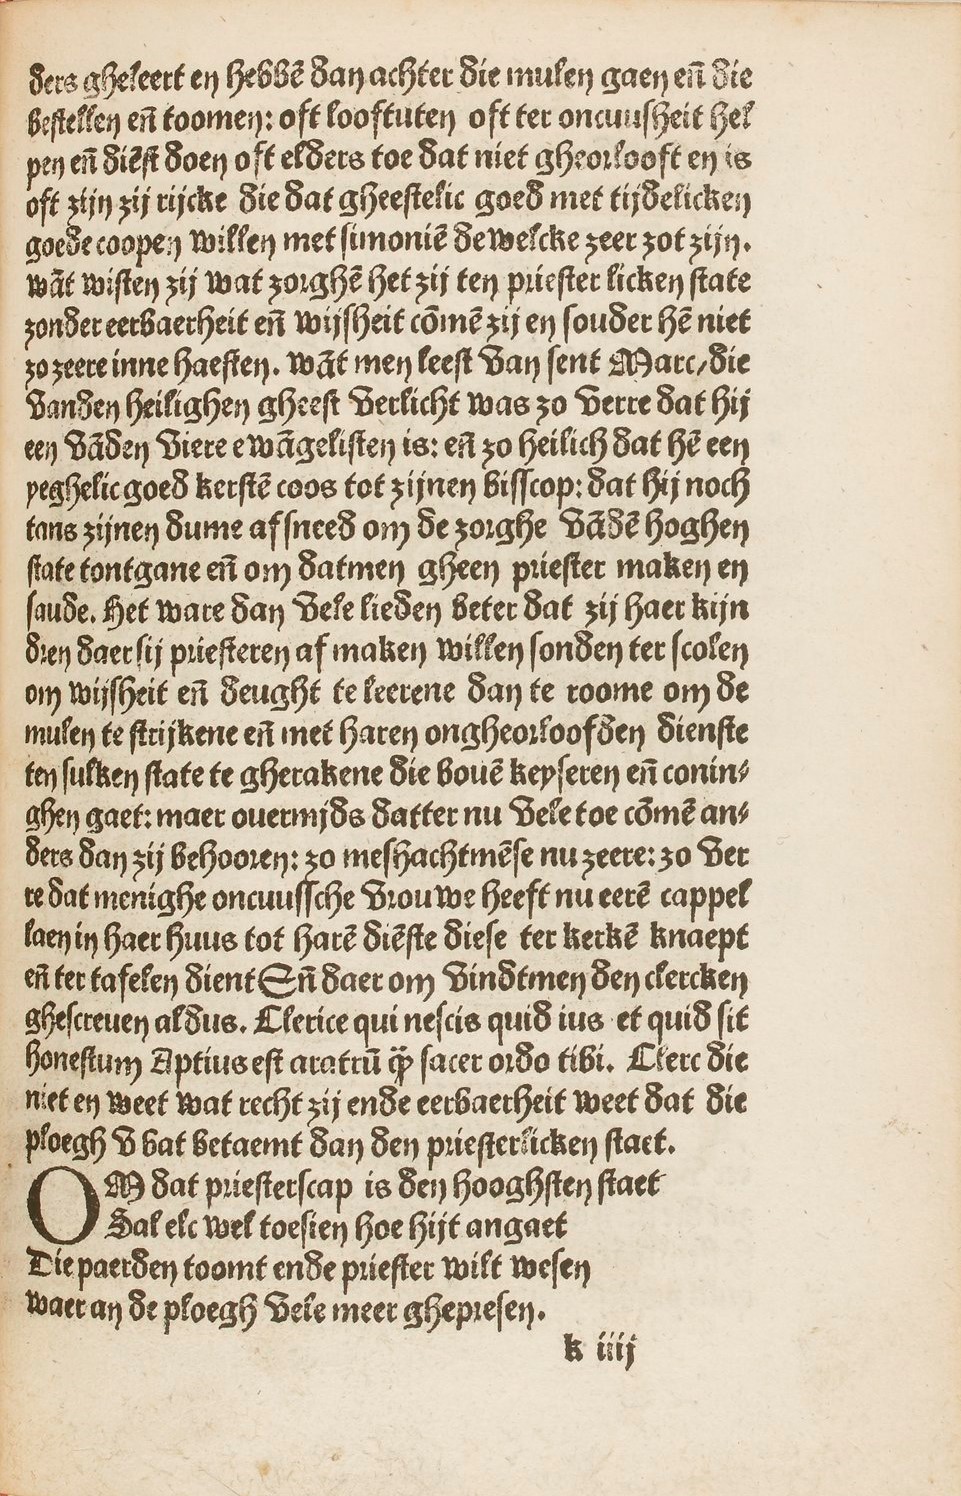 ders gheleert en hebbē dan achter die mulen gaen eñ die
bestellen eñ toomen: oft looftuten oft ter oncuusheit hel
pen eñ diēst doen oft elders toe dat niet gheorlooft en is
oft zijn zij rijcke die dat gheestelic goed met tijdelicken
goede coopen willen met simoniē dewelcke zeer zot zijn.
wāt wisten zij wat zorghē het zij ten priester licken state
zonder eerbaerheit eñ wijsheit cōmē zij en souder hē niet
zo zeere inne haesten. wāt men leest van sent Marc/die
vanden heilighen gheest verlicht was zo verre dat hij
een vāden viere ewāgelisten is: eñ zo heilich dat hē een
yeghelic goed kerstē coos tot zijnen bisscop: dat hij noch
tans zijnen dume afsneed om de zorghe vādē hoghen
state tontgane eñ om datmen gheen priester maken en
saude. Het ware dan vele lieden beter dat zij haer kijn
dren daer sij priesteren af maken willen sonden ter scolen
om wijsheit eñ deught te leerene dan te roome om de
mulen te strijkene eñ met haren ongheorloofden dienste
ten sulken state te gherakene die bouē keyseren eñ conin⸗
ghen gaet: maer ouermids datter nu vele toe cōmē an⸗
ders dan zij behooren: zo meshachtmēse nu zeere: zo ver
re dat menighe oncuussche vrouwe heeft nu eerē cappel
laen in haer huus tot harē diēste diese ter kerkē knaept
eñ ter tafelen dient Eñ daer om vindtmen den clercken
ghescreuen aldus. Clerice qui nescis quid ius et quid sit
honestum Aptius est aratrū qȝ sacer ordo tibi. Clerc die
niet en weet wat recht zij ende eerbaerheit weet dat die
ploegh v bat betaemt dan den priesterlicken staet.
OM dat priesterscap is den hooghsten staet
Sal elc wel toesien hoe hijt angaet
Die paerden toomt ende priester wilt wesen
waer an de ploegh vele meer ghepresen.
k iiij